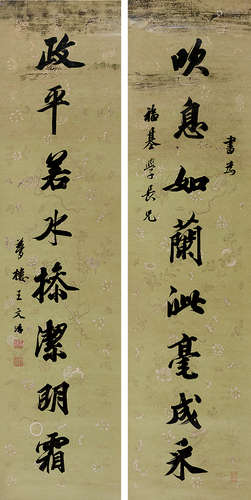 書為
福基學長兄
吹息如蘭泚毫成采
政平若水操潔明霜
夢樓王文治